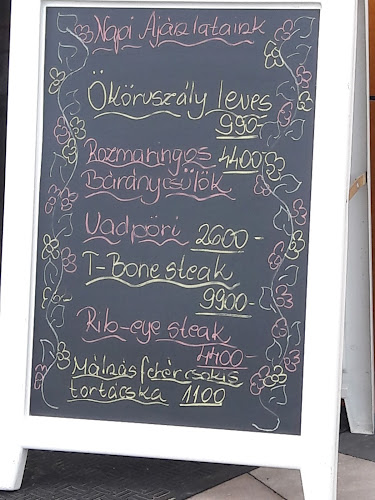 Napi Ajánlataink
Ököruszály leves
990-
Rozmaringos 4400-
Báránycsülök
Vadpöri 2600-
T-Bone steak
9900-
Rib-eye steak
4400-
Málnás fehércsokis
tortácska 1100